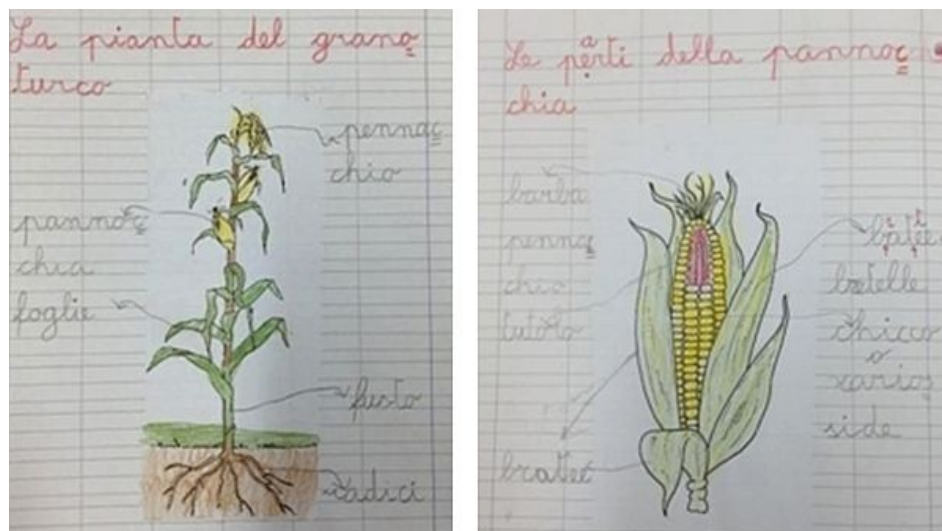 La pianta del grano
turco
pennac
chio
pannoc
chia
foglie
fusto
radici
Le parti della pannoc
chia
barba
pennac
chio
tutolo
bratee
brattee
bratelle
chicco
o
carios
side